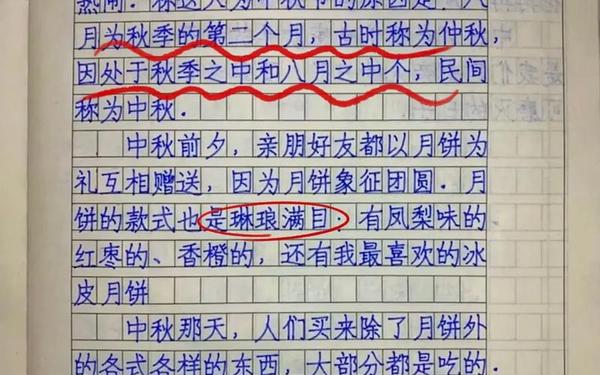 热闹.称这天为中秋节的原因是,八
月为秋季的第二个月,古时称为仲秋,
因处于秋季之中和八月之中个,民间
称为中秋.
中秋前夕,亲朋好友都以月饼为
礼互相赠送,因为月饼象征团圆.月
饼的款式也是琳琅满目:有凤梨味的
红枣的、香橙的,还有我最喜欢的冰
皮月饼
中秋那天,人们买来除了月饼外
的各式各样的东西,大部分都是吃的.